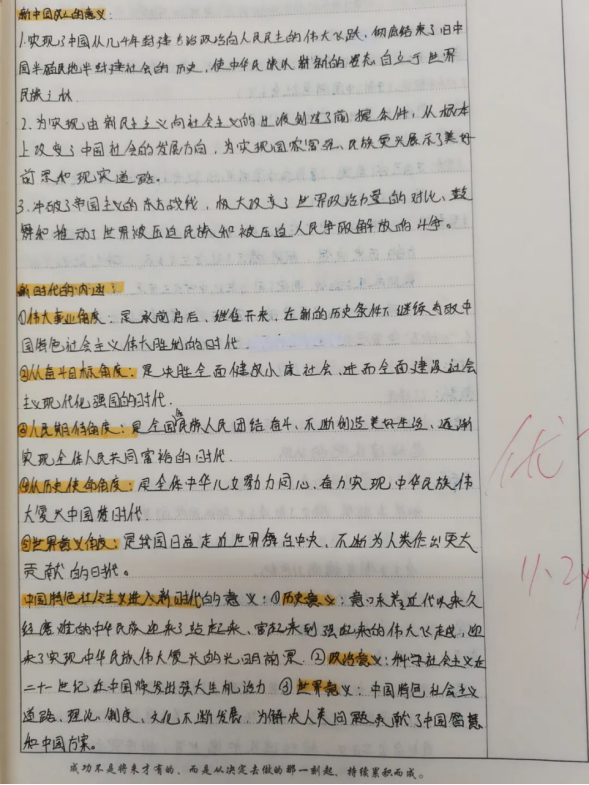 新中国成立的意义:
1.实现了中国从几千年封建专治政治向人民民主的伟大飞跃,彻底结束了旧中
国半殖民地半封建社会的历史,使中华民族以崭新的姿态自立于世界
民族之林
2.为实现由新民主主义向社会主义的过渡创造了前提条件,从根本
上改变了中国社会的发展方向,为实现国家富强、民族复兴展示了美好
前景和现实道路。
3.冲破了帝国主义的东方战线,极大改变了世界政治力量的对比,鼓
舞和推动了世界被压迫民族和被压迫人民争取解放的斗争。
新时代的内涵:
①伟大事业角度:是承前启后、继往开来,在新的历史条件下继续夺取中
国特色社会主义伟大胜利的时代
②从奋斗目标角度:是决胜全面建成小康社会,进而全面建设社会
主义现代化强国的时代.
③人民期待角度:是全国各族人民团结奋斗、不断创造美好生活、逐渐
实现全体人民共同富裕的时代.
④从历史使命角度:是全体中华儿女勠力同心,奋力实现中华民族伟
大复兴中国梦时代.
⑤世界意义角度:是我国日益走近世界舞台中央,不断为人类作出更大
贡献的时代。
中国特色社会主义进入新时代的意义:①历史意义:意味着近代以来久
经磨难的中华民族迎来了站起来、富起来到强起来的伟大飞跃,迎
来了实现中华民族伟大复兴的光明前景.②政治意义:科学社会主义在
二十一世纪在中国焕发出强大生机活力③世界意义:中国特色社会主义
道路、理论、制度、文化不断发展,为解决人类问题贡献了中国智慧
和中国方案。
优
11.24
成功不是将来才有的,而是从决定去做的那一刻起,持续累积而成。